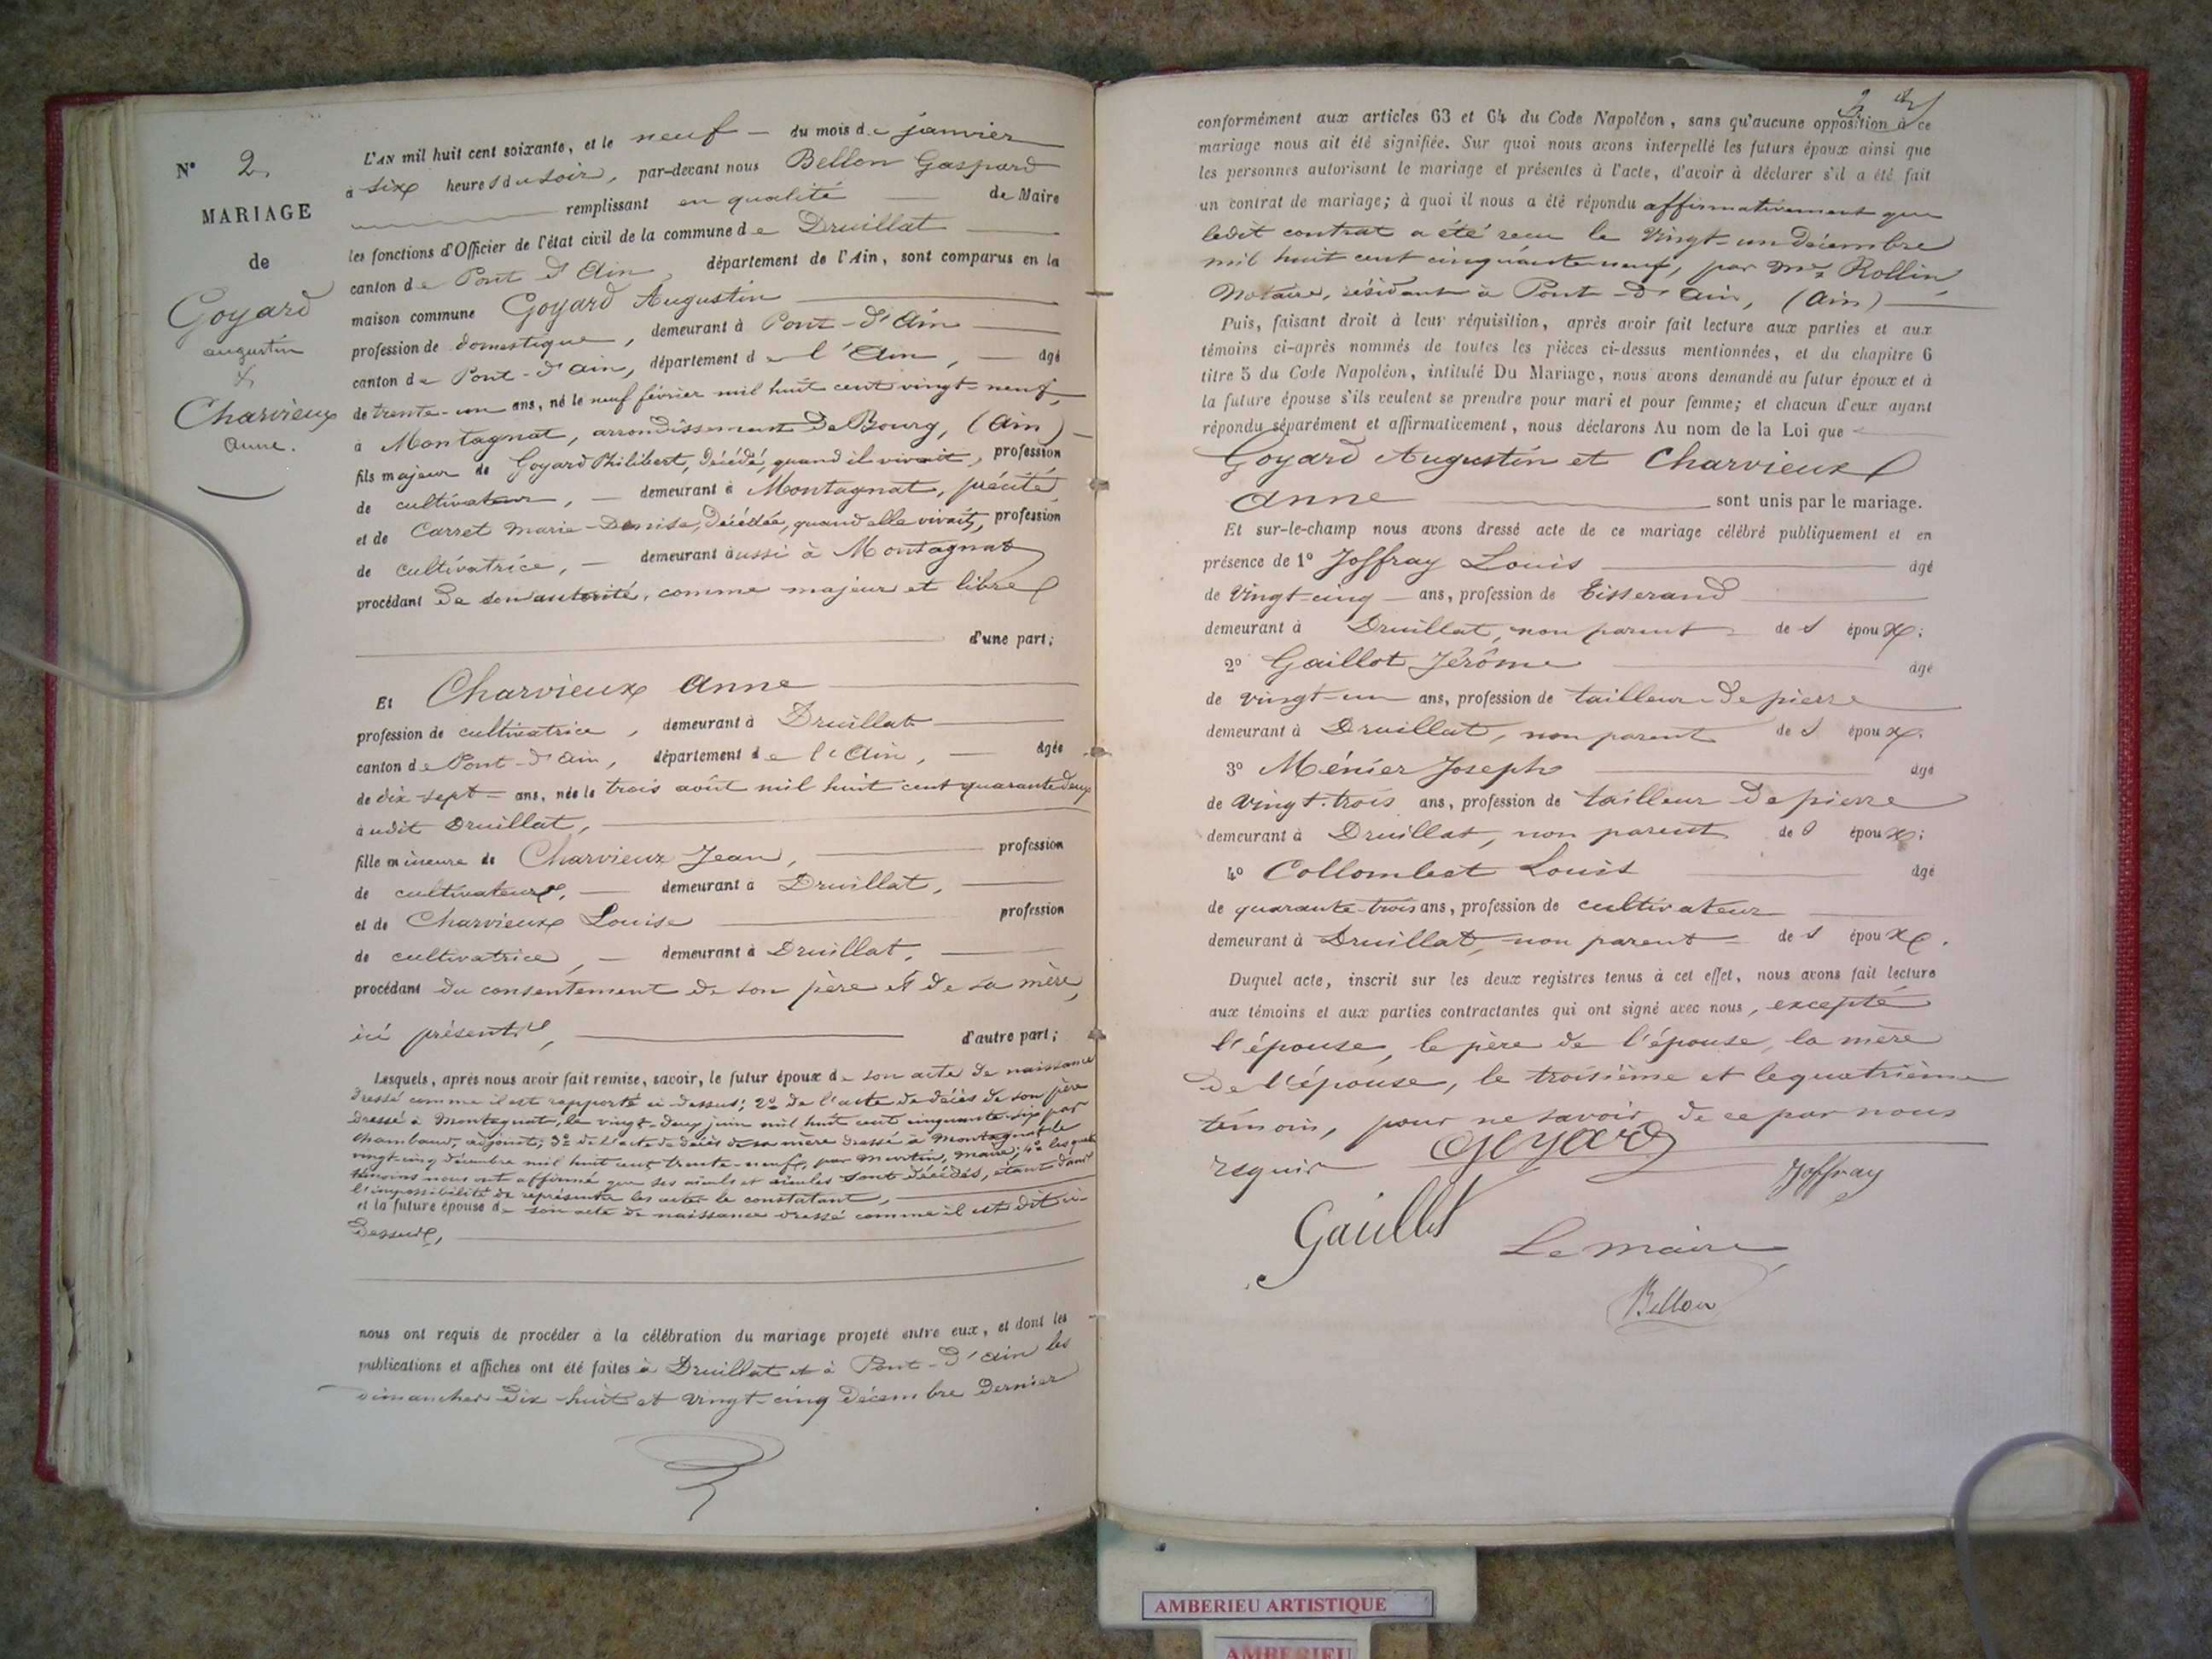 N° 2.
MARIAGE
de
Goyard
augustin
&
Charvieux
anne.
L'AN mil huit cent soixante, et le neuf du mois de janvier
à six heures du soir, par-devant nous Bellon Gaspard
remplissant en qualité de Maire
les fonctions d'Officier de l'état civil de la commune de Druillat
canton de Pont d'Ain, département de l'Ain, sont comparus en la
maison commune Goyard Augustin
profession de domestique, demeurant à Pont-d'Ain
canton de Pont-d'ain, département de l'Ain, âgé
de trente-un ans, né le neuf février mil huit cent vingt-neuf,
à Montagnat, arrondissement de Bourg, (Ain)
fils majeur de Goyard Philibert, décédé, quand il vivait, profession
de cultivateur, demeurant à Montagnat, précité,
et de Carret Marie-Denise, décédée, quand elle vivait, profession
de cultivatrice, demeurant aussi à Montagnat
procédant de son autorité, comme majeur et libre
d'une part;
Et Charvieux Anne
profession de cultivatrice, demeurant à Druillat
canton de Pont-d'ain, département de l'Ain, âgée
de dix-sept ans, née le trois août mil huit cent quarante deux
audit Druillat,
fille mineure de Charvieux Jean, profession
de cultivateur, demeurant à Druillat,
et de Charvieux Louise profession
de cultivatrice, demeurant à Druillat,
procédant du consentement de son père et de sa mère,
ici présents, d'autre part;
Lesquels, après nous avoir fait remise, savoir, le futur époux de son acte de naissance
dressé comme il est rapporté ci-dessus; 2° de l'acte de décès de son père
dressé à Montagnat, le vingt-deux juin mil huit cent cinquante-six par
Chambaud, adjoint; 3° de l'acte de décès de sa mère dressé à Montagnat le
vingt-cinq décembre mil huit cent trente-neuf, par Martin, maire; 4° lesquels
témoins nous ont affirmé que ses aïeuls et aïeules sont décédés, étant dans
l'impossibilité de représenter les actes le constatant,
et la future épouse de son acte de naissance dressé comme il est dit ci-
dessus,
nous ont requis de procéder à la célébration du mariage projeté entre eux, et dont les
publications et affiches ont été faites à Druillat et à Pont-d'ain les
dimanches dix-huit et vingt-cinq décembre dernier
conformément aux articles 63 et 64 du Code Napoléon, sans qu'aucune opposition à ce
mariage nous ait été signifiée. Sur quoi nous avons interpellé les futurs époux ainsi que
les personnes autorisant le mariage et présentes à l'acte, d'avoir à déclarer s'il a été fait
un contrat de mariage; à quoi il nous a été répondu affirmativement que
ledit contrat a été reçu le vingt-un décembre
mil huit cent cinquante neuf, par Me Rollin,
Notaire, résidant à Pont-d'ain, (Ain)
Puis, faisant droit à leur réquisition, après avoir fait lecture aux parties et aux
témoins ci-après nommés de toutes les pièces ci-dessus mentionnées, et du chapitre 6
titre 5 du Code Napoléon, intitulé Du Mariage, nous avons demandé au futur époux et à
la future épouse s'ils veulent se prendre pour mari et pour femme; et chacun d'eux ayant
répondu séparément et affirmativement, nous déclarons Au nom de la Loi que
Goyard Augustin et Charvieux
Anne sont unis par le mariage.
Et sur-le-champ nous avons dressé acte de ce mariage célébré publiquement et en
présence de 1° Joffray Louis âgé
de vingt-cinq ans, profession de tisserand
demeurant à Druillat, non parent des époux;
2° Gaillot Jérôme âgé
de vingt-un ans, profession de tailleur de pierre
demeurant à Druillat, non parent des époux.
3° Ménier Joseph âgé
de vingt-trois ans, profession de tailleur de pierre
demeurant à Druillat, non parent des époux;
4° Collombet Louis âgé
de quarante-trois ans, profession de cultivateur
demeurant à Druillat, non parent des époux.
Duquel acte, inscrit sur les deux registres tenus à cet effet, nous avons fait lecture
aux témoins et aux parties contractantes qui ont signé avec nous, excepté
l'épouse, le père de l'épouse, la mère
de l'épouse, le troisième et le quatrième
témoin, pour ne savoir, de ce par nous
requis Goyard
Joffray
Gaillot
Le maire
Bellon
AMBERIEU ARTISTIQUE
AMBERIEU